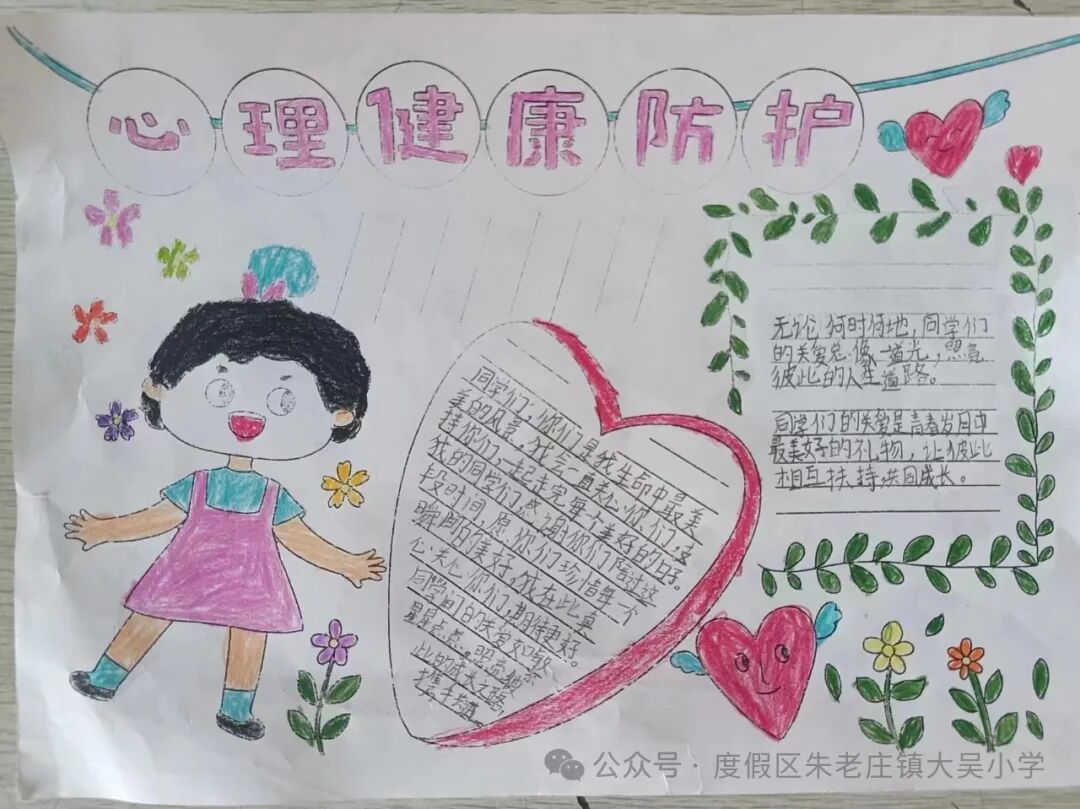 心理健康防护
同学们，你们是我生命中最美
美的风景。我会一直关心你们，支
持你们，一起走完每个美好的日子。
我的同学们，感谢你们陪过这
段时间，愿你们珍惜每一个
瞬间的美好，我在此真
心关心你们，期待更好。
同学间的关爱如繁
星点点，照亮彼
此的成长之路，
无论何时何地，同学们
的关爱总像一道光，照亮
彼此的人生道路。
同学们的关爱是青春岁月中
最美好的礼物，让彼此
相互扶持，共同成长。
公众号·度假区朱老庄镇大吴小学